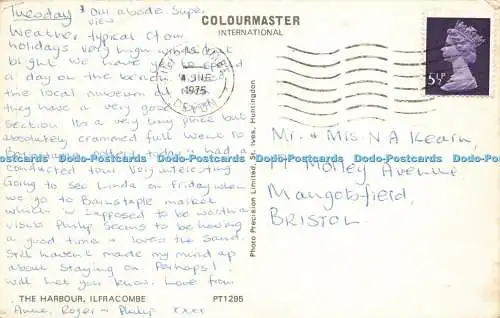 Tuesday * Our abode. Supe
view
Weather typical of our
holidays very high winds but
bright We have yet to spend
a day on the beach.
the local museum
they have a very good
section. Its a very busy place but
absolutely crammed full. Went to
Pottery today & had a
conducted tour. Very interesting
Going to see Linda on Friday when
we go to Barnstaple market
which is supposed to be worth a
visit. Philip seems to be having
a good time & loves the sand.
Still haven't made my mind up
about staying on. Perhaps!
Will let you know. Love from
Anne, Roger & Philip xxxx
THE HARBOUR, ILFRACOMBE
PT1295
COLOURMASTER
INTERNATIONAL
Photo Precision Limited, St. Ives, Huntingdon
4 JNE
1975
DEVON
5½P
Mr. & Mrs N A Kearn,
Morley Avenue
Mangotsfield,
BRISTOL
Dodo-Postcards Dodo-Postcards Dodo-Postcards Dodo-Postcards Dodo-Postcards Dodo-Postcards